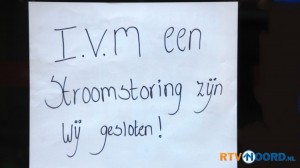 I.V.M een
Stroomstoring zijn
wij gesloten!
RTVNOORD.NL